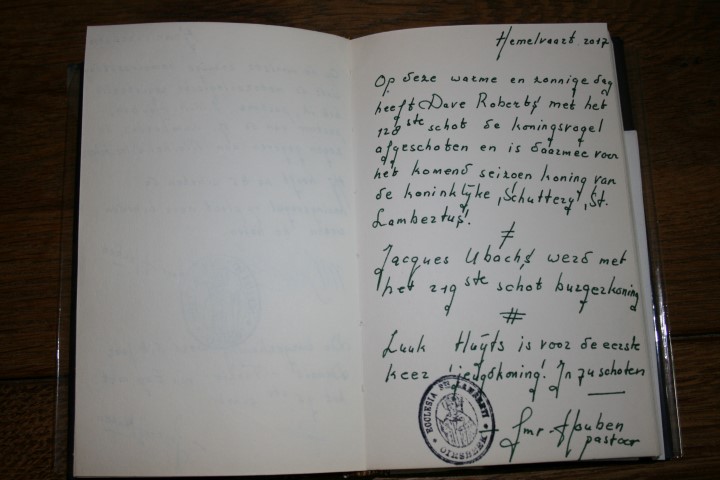 Hemelvaart 2017
Op deze warme en zonnige dag
heeft Dave Roberts met het
128ste schot de koningsvogel
afgeschoten en is daarmee voor
het komend seizoen koning van
de koninklijke 'Schuttery' 'St.
Lambertus'.
Jacques Ubachs werd met
het 219ste schot burgerkoning
Luuk Huÿts is voor de eerste
keer 'jeugdkoning'. In 74 schoten
ECCLESIA STI LAMBERTI
OIRSBEEK
Houben
pastoor